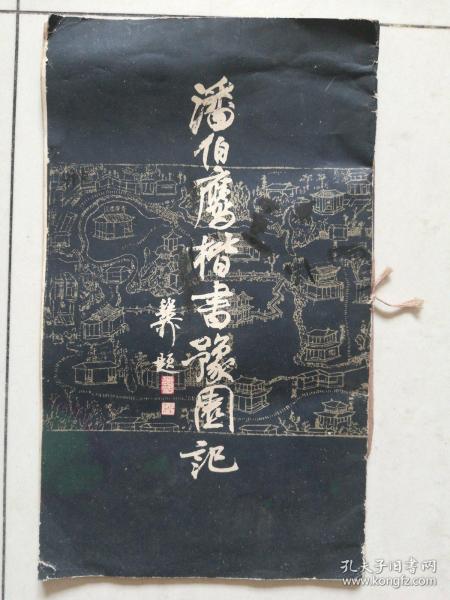 潘伯鹰楷书豫園記
龚题
孔夫子旧书网
www.kongfz.com